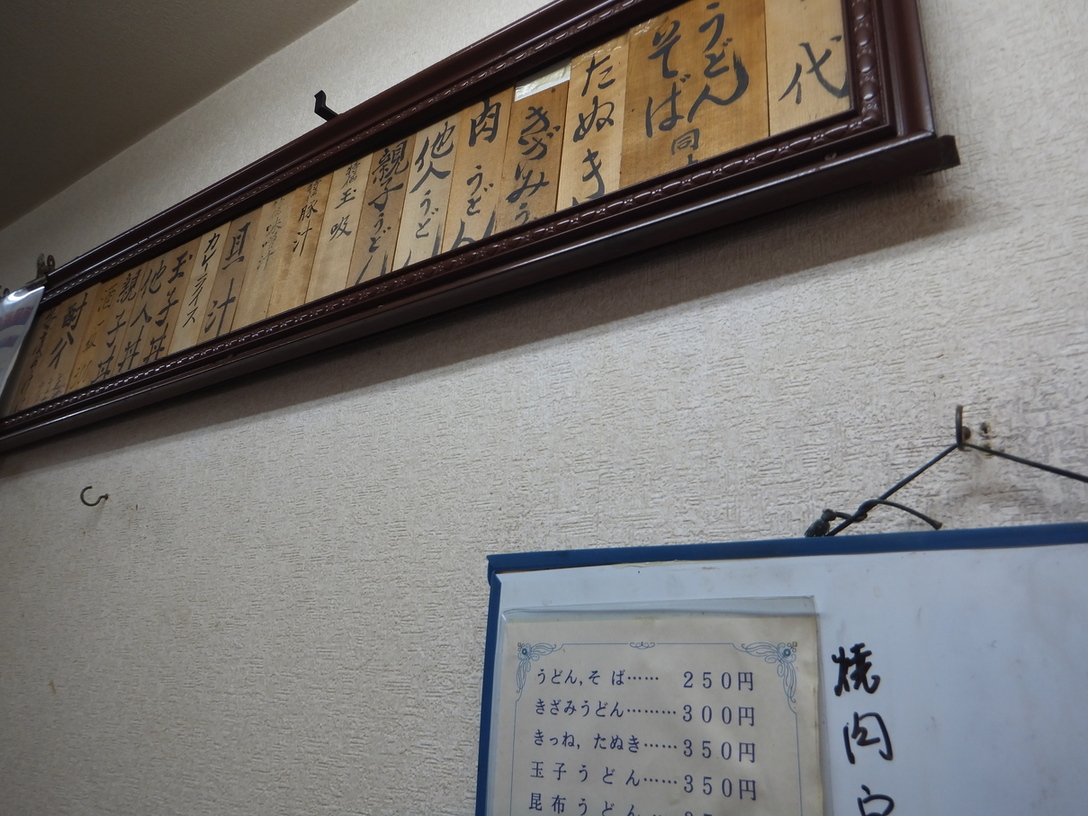 代
うどん
そば 同
たぬき
きざみう
肉うどん
他人うど
親子うどん
玉吸
豚汁
貝汁
カレーライス
玉子丼
他人丼
親子丼
酎ハイ
うどん,そ ば…… 250円
きざみうどん………300円
きつね, たぬき……350円
玉子うどん……350円
昆布うどん
焼肉